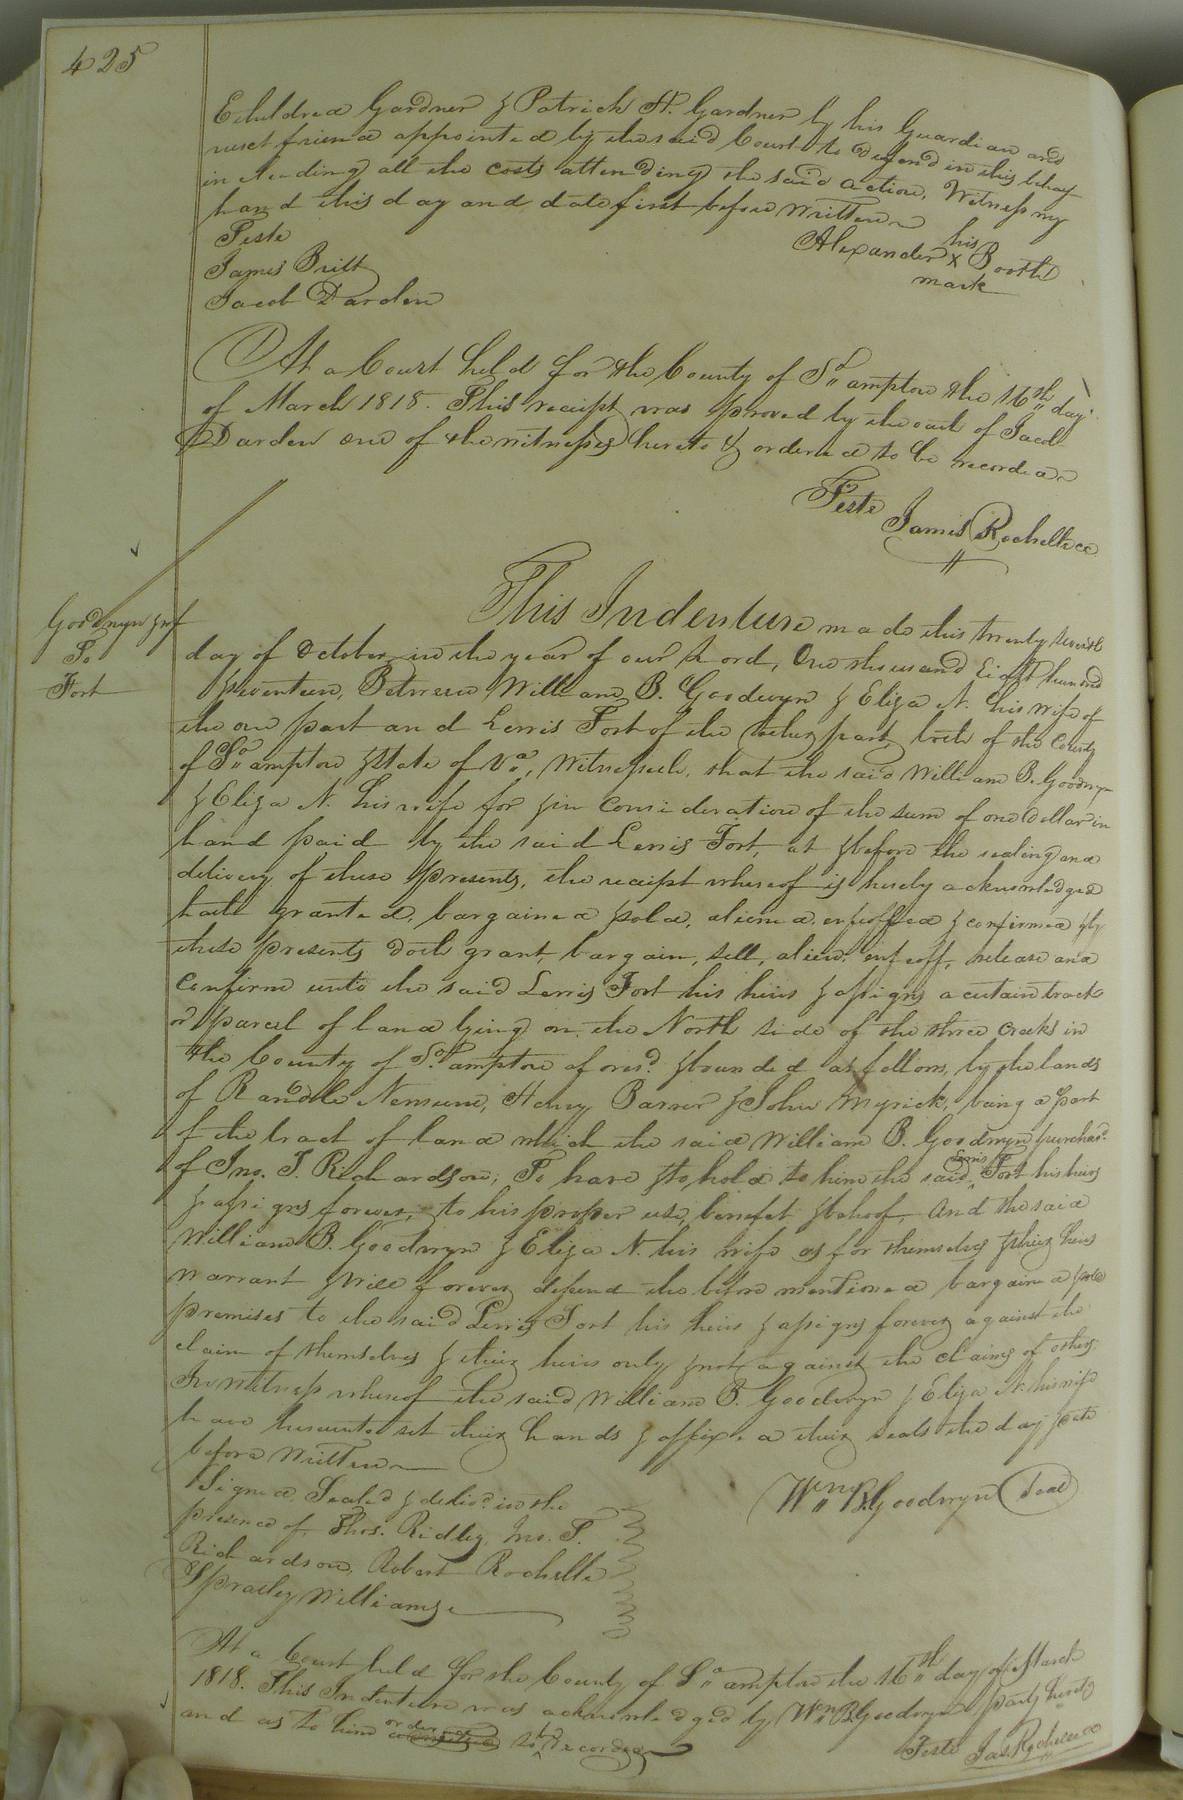 425
Etheldred Gardner & Patrick H. Gardner by his Guardian and
next friend appointed by the said Court to defend in this behalf
including all the costs attending the said action, Witness my
hand this day and date first before written
Teste
James Britt
Jacob Darden
his
Alexander X Booth
mark
At a Court held for the County of So,,ampton the 16th,, day
of March 1818. This receipt was proved by the oath of Jacob
Darden one of the witnesses hereto & ordered to be recorded
Teste
James Rochelle cc
Goodwyn & wf
To
Fort
This Indenture made this twenty seventh
day of October in the year of our Lord, One thousand Eight hundred
seventeen, Between William B. Goodwyn & Eliza N. his wife of
the one part and Lewis Fort of the other part, both of the County
of So,,ampton & State of Va., Witnesseth, that the said William B. Goodwyn
& Eliza N. his wife for & in consideration of the sum of one Dollar in
hand paid by the said Lewis Fort, at & before the sealing and
delivery of these presents, the receipt whereof is hereby acknowledged
hath granted, bargained & sold, aliened, enfeoffed & confirmed & by
these presents doth grant, bargain, sell, alien, enfeoff, release and
confirm unto the said Lewis Fort his heirs & assigns a certain tract
or parcel of land lying on the North side of the three creeks in
the County of So.ampton aforesd. & bounded as follows, by the lands
of Randle Newsum, Henry Barner & John Myrick, being a part
of the tract of land which the said William B. Goodwyn purchasd.
of Jno. T. Richardson; To have & to hold to him the said Lewis Fort his heirs
& assigns forever, to his proper use, benefit & behoof, And the said
William B. Goodwyn & Eliza N. his wife as for themselves & their heirs
warrant & will forever defend the before mentioned bargained & sold
premises to the said Lewis Fort his heirs & assigns forever against the
claim of themselves & their heirs only & not against the claims of others
In witness whereof the said William B. Goodwyn & Eliza N. his wife
have hereunto set their hands & affixed their seals the day & date
before written
Signed, Sealed & delivd. in the
presence of Thos. Ridley, Jno. T.
Richardson, Robert Rochelle
Spratley Williams
Wm,, B. Goodwyn Seal
At a Court held for the County of So,,ampton the 16th,, day of March
1818. This Indenture was acknowledged by Wm,, B. Goodwyn party hereto
and as to him ordered to be recorded
Teste Jas. Rochelle cc